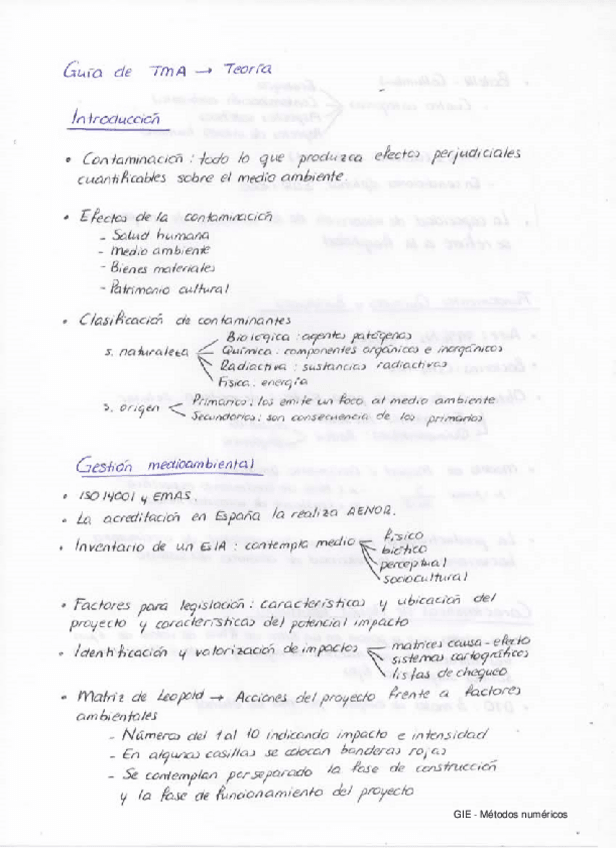 Guía de TMA → Teoría
Introducción
• Contaminación: todo lo que produzca efectos perjudiciales
cuantificables sobre el medio ambiente.
• Efectos de la contaminación
- Salud humana
- Medio ambiente
- Bienes materiales
- Patrimonio cultural
• Clasificación de contaminantes
s. naturaleza
Biológica: agentes patógenos
Química: componentes orgánicos e inorgánicos
Radiactiva: sustancias radiactivas
Física: energía
s. origen
Primarios: los emite un foco al medio ambiente
Secundarios: son consecuencia de los primarios
Gestión medioambiental
• ISO 14001 y EMAS.
• La acreditación en España la realiza AENOR.
• Inventario de un EIA: contempla medio
físico
biótico
perceptual
sociocultural
• Factores para legislación: características y ubicación del
proyecto y características del potencial impacto
• Identificación y valorización de impactos
matrices causa-efecto
sistemas cartográficos
listas de chequeo
• Matriz de Leopold → Acciones del proyecto frente a factores
ambientales
- Números del 1 al 10 indicando impacto e intensidad
- En algunas casillas se colocan banderas rojas
- Se contemplan por separado la fase de construcción
y la fase de funcionamiento del proyecto
GIE - Métodos numéricos